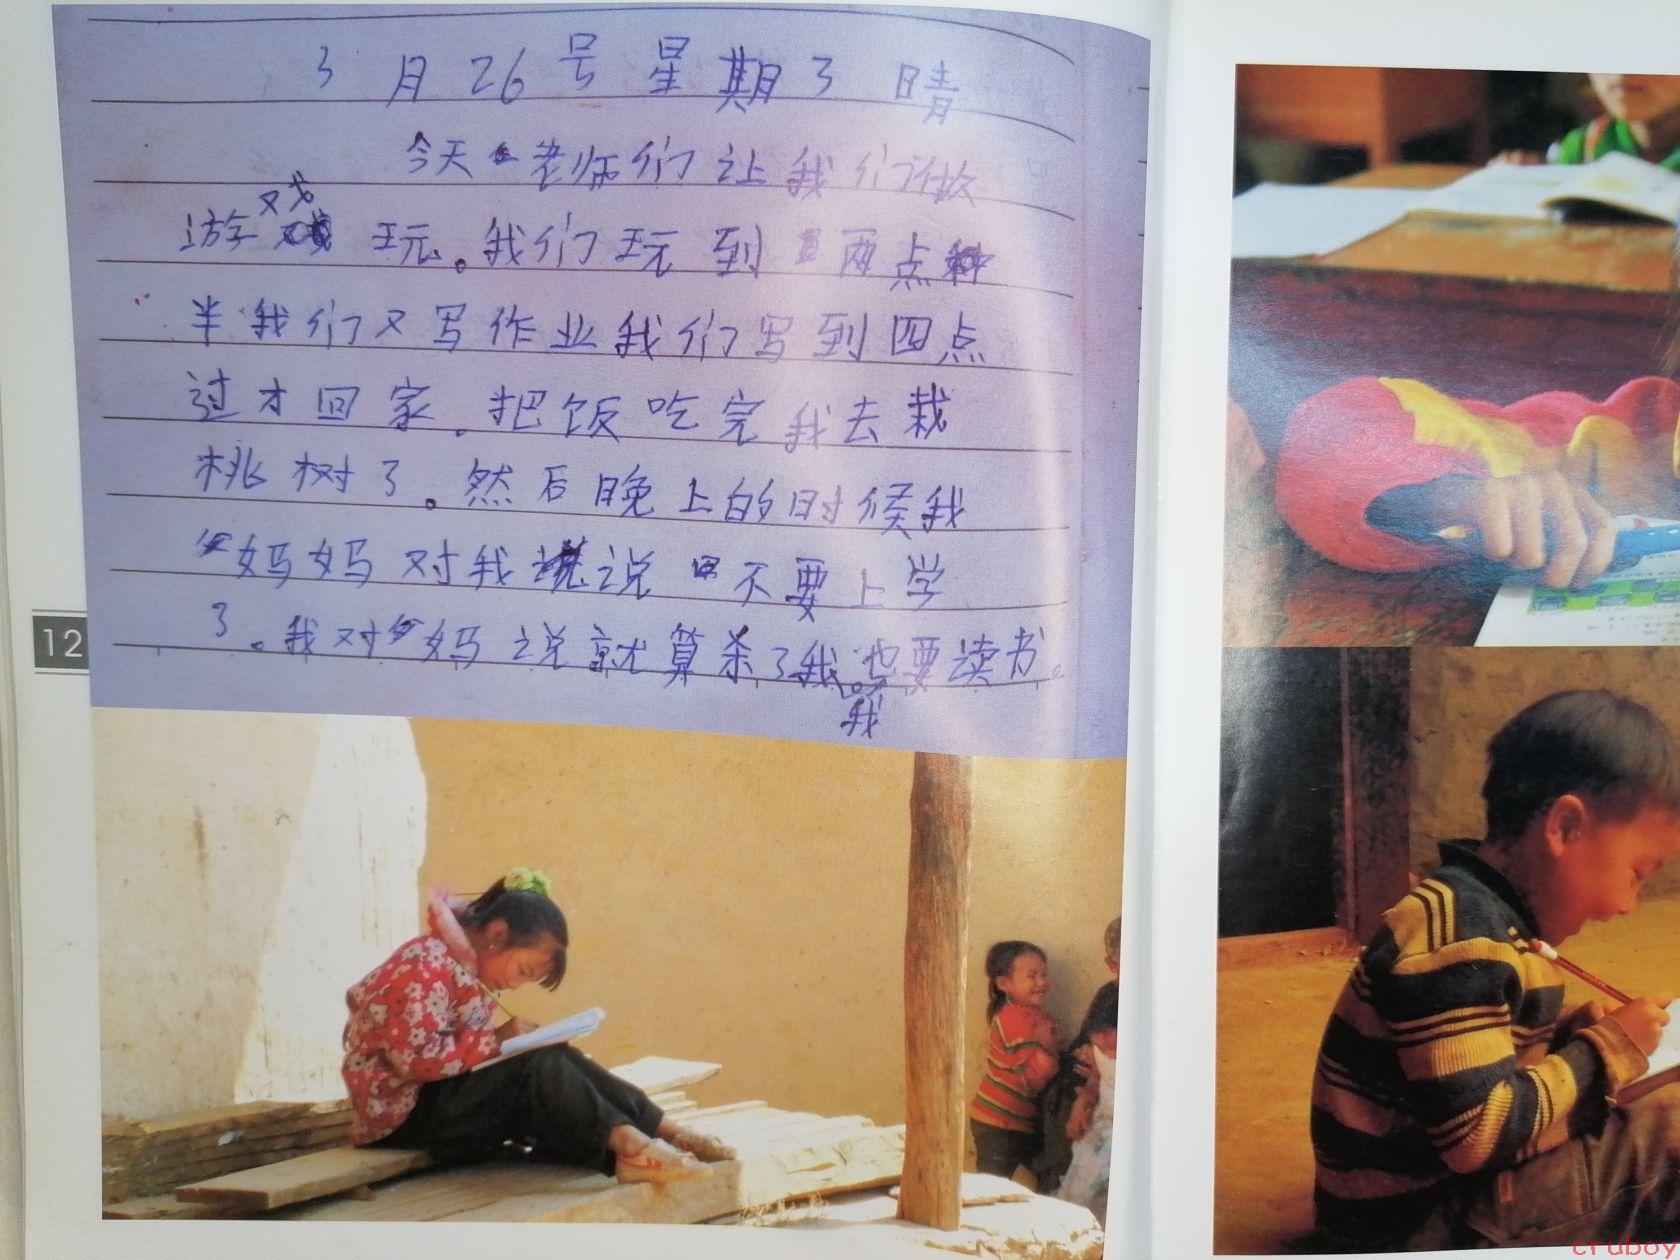 3月26号星期3 晴
今天老师们让我们做
游戏玩。我们玩到两点
半我们又写作业我们写到四点
过才回家。把饭吃完我去栽
桃树了。然后晚上的时候我
妈妈对我说不要上学
了。我对妈说就算杀了我。我也要读书。
12
cruboy